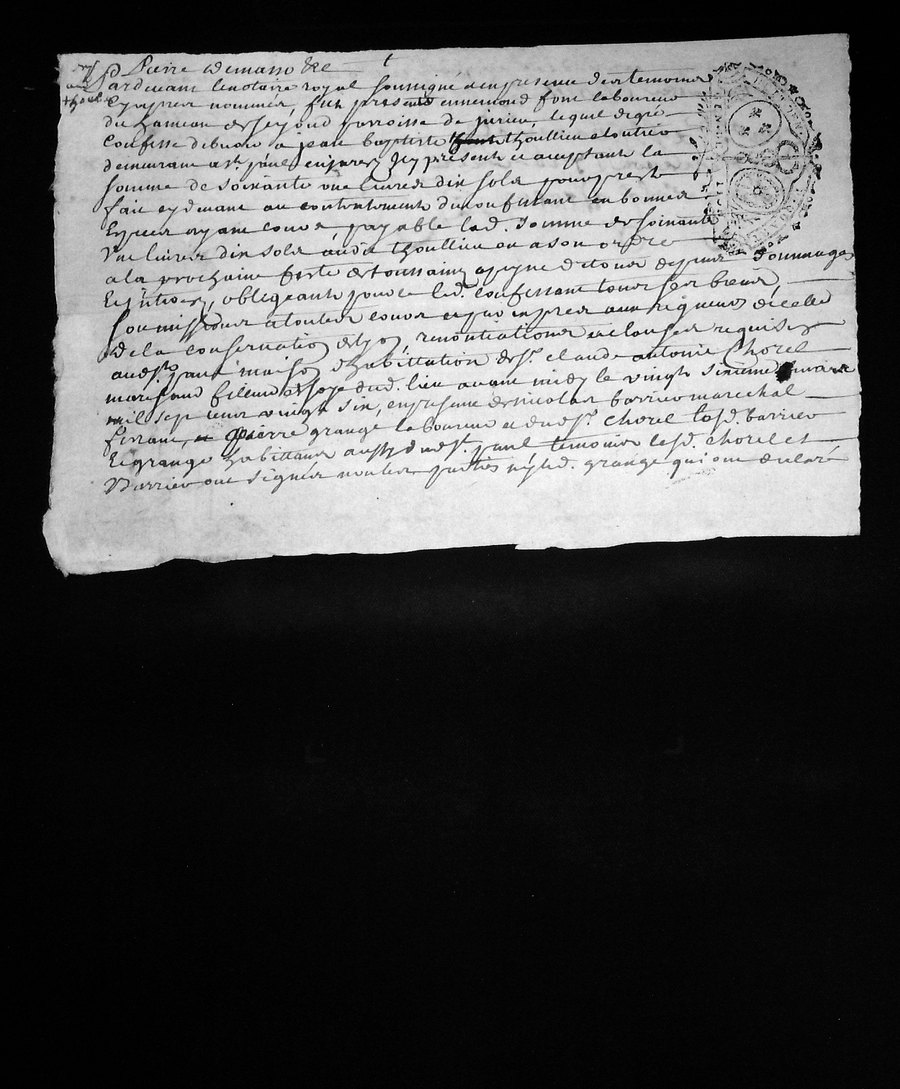 Pardevant le notaire royal soussigné et en presence des temoins
cy apres nommés fut present ennemond font laboureur
du hameau de paroisse de jurieu, lequel de gré
confesse debvoir a jean baptiste thoullieu
demeurant a st. paul en jarez icy present et acceptant la
somme de soixante une livres dix sols pour prest
fait cy devant au contentement du confessant en bonnes
especes ayant cours payable lad. somme de soixante
une livres dix sols aud. thoullieu ou a son ordre
a la prochaine feste de toussaint a peyne de tous despens dommages
et interests, obligeant pour ce led. confessant tous ses biens
soumissions a toutes cours et par expres aux rigueurs de celle
de la conservation de lyon, renontiations et clauses requises
aud. st. paul maison d'habittation de sr. claude antoine Chorel
marchand filleur de soye dud. lieu avant midy le vingt sixieme
mil sept cent vingt six, en presence de nicolas barrieu marechal
ferrant, et pierre grange laboureur et dud. sr. chorel lesd. barrieu
et grange habittants aussy dud. st. paul temoins lesd. chorel et
Barrieu ont signés non les parties ny led. grange qui ont declaré